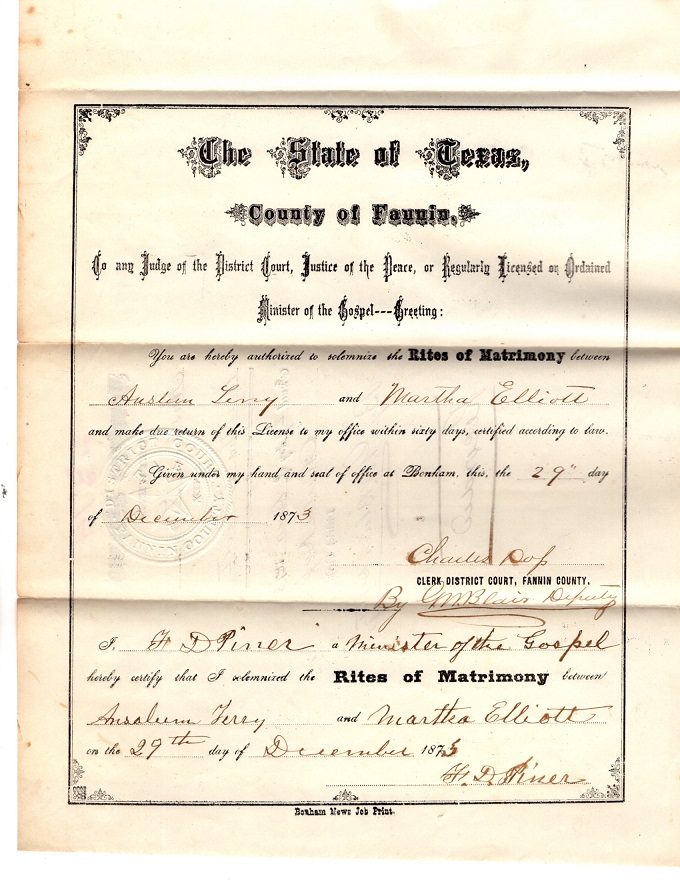 The State of Texas,
County of Fannin.
To any Judge of the District Court, Justice of the Peace, or Regularly Licensed or Ordained
Minister of the Gospel---Greeting:
You are hereby authorized to solemnize the Rites of Matrimony between
and Martha Elliott
and make due return of this License to my office within sixty days, certified according to law.
Given under my hand and seal of office at Bonham, this, the 29" day
of December 1873
Charles
CLERK DISTRICT COURT, FANNIN COUNTY.
By Blair Deputy
I, D Piner a Minister of the Gospel
hereby certify that I solemnized the Rites of Matrimony between
Terry and Martha Elliott
on the 29th day of December 1873
D. Piner
Bonham News Job Print.
DISTRICT COURT
FANNIN COUNTY